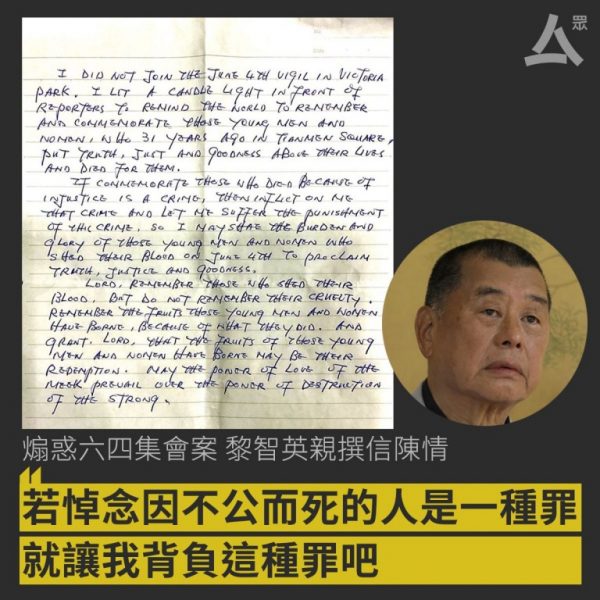 眾
I DID NOT JOIN THE JUNE 4TH VIGIL IN VICTORIA
PARK. I LIT A CANDLE LIGHT IN FRONT OF
REPORTERS TO REMIND THE WORLD TO REMEMBER
AND COMMEMORATE THOSE YOUNG MEN AND
WOMEN, WHO 31 YEARS AGO IN TIANMEN SQUARE,
PUT TRUTH, JUST AND GOODNESS ABOVE THEIR LIVES
AND DIED FOR THEM.
IF COMMEMORATE THOSE WHO DIED BECAUSE OF
INJUSTICE IS A CRIME, THEN INFLICT ON ME
THAT CRIME AND LET ME SUFFER THE PUNISHMENT
OF THIS CRIME, SO I MAY SHAE THE BURDEN AND
GLORY OF THOSE YOUNG MEN AND WOMEN WHO
SHED THEIR BLOOD ON JUNE 4TH TO PROCLAIM
TRUTH, JUSTICE AND GOODNESS.
LORD, REMEMBER THOSE WHO SHED THEIR
BLOOD, BUT DO NOT REMEMBER THEIR CRUELTY.
REMEMBER THE FRUITS THOSE YOUNG MEN AND WOMEN
HAVE BORNE, BECAUSE OF WHAT THEY DID. AND
GRANT, LORD, THAT THE FRUITS OF THOSE YOUNG
MEN AND WOMEN HAVE BORNE MAY BE THEIR
REDEMPTION. MAY THE POWER OF LOVE OF THE
MEEK PREVAIL OVER THE POWER OF DESTRUCTION
OF THE STRONG.
煽惑六四集會案 黎智英親撰信陳情
若悼念因不公而死的人是一種罪
就讓我背負這種罪吧